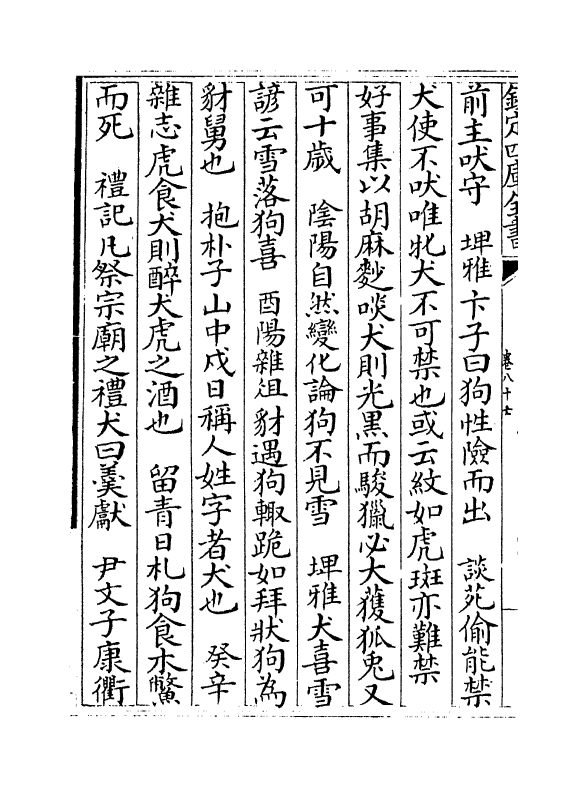 欽定四庫全書
卷八十七
前主吠守　埤雅卞子曰狗性險而出　談苑偷能禁
犬使不吠唯牝犬不可禁也或云紋如虎斑亦難禁
好事集以胡麻麨啖犬則光黑而駿獵必大獲狐兎又
可十歲　陰陽自然變化論狗不見雪　埤雅犬喜雪
諺云雪落狗喜　酉陽雜俎豺遇狗輙跪如拜狀狗為
豺舅也　抱朴子山中戍日稱人姓字者犬也　癸辛
雜志虎食犬則醉犬虎之酒也　留青日札狗食木鱉
而死　禮記凡祭宗廟之禮犬曰羮獻　尹文子康衢